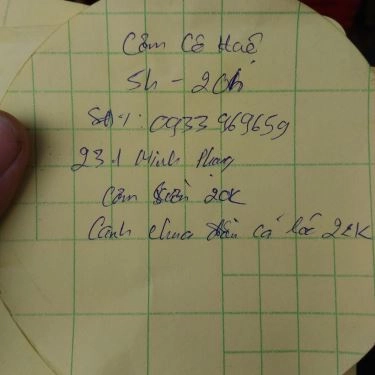 Cơm Cô Huê
5h - 20h
SĐT: 0933 969659
231 Minh Phụng
Cơm 20K
Canh chua cá lóc 22K